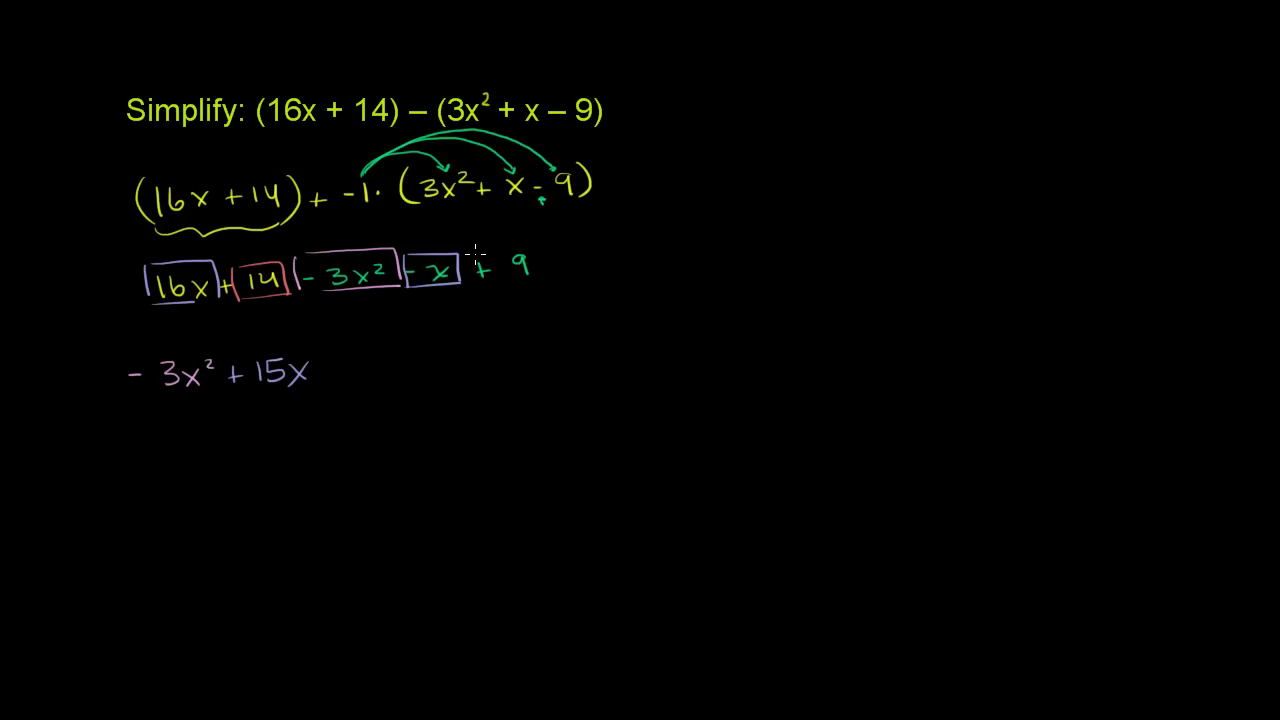 Simplify: (16x + 14) – (3x² + x – 9)
(16x + 14) + -1· (3x² + x - 9)
16x + 14 - 3x² - x + 9
- 3x² + 15x